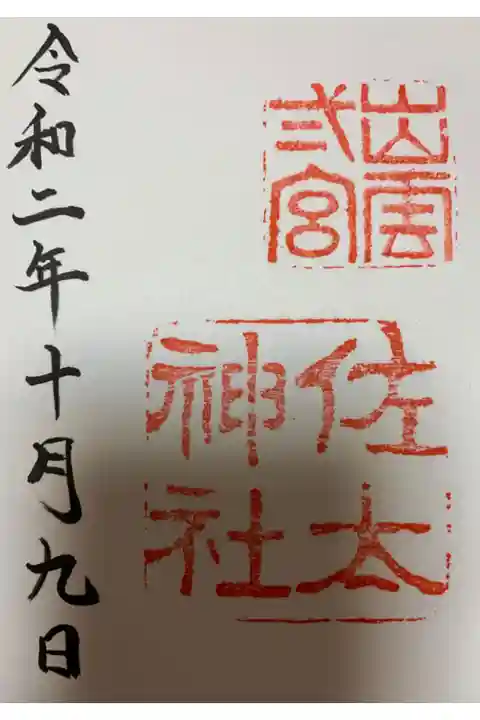 出雲
弍宮
佐太
神社
令和二年十月九日